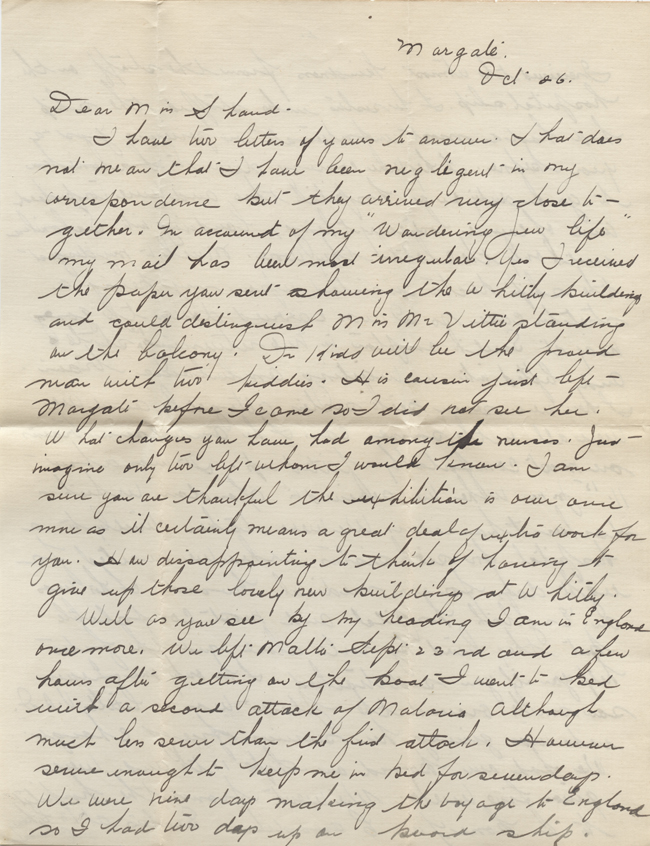 Margate.
Oct 26.
Dear Miss Shand -
I have two letters of yours to answer. That does
not mean that I have been negligent in my
correspondence but they arrived very close to-
gether. On account of my "Wandering Jew life"
my mail has been most irregular. Yes I received
the paper you sent showing the Whitby building
and could distinguish Miss McVittie standing
on the balcony. Dr Kidd will be the proud
man with two kiddies. His cousin just left
Margate before I came so I did not see her.
What changes you have, had among the nurses. Just
imagine only two left whom I would know. I am
sure you are thankful the exhibition is over once
more as it certainly means a great deal of extra work for
you. How dissappointing to think of having to
give up those lovely new buildings at Whitby.
Well as you see by my heading I am in England
once more. We left Malta Sept 23rd and a few
hours after getting on the boat I went to bed
with a second attack of Malaria although
much less severe than the first attack. However
severe enough to keep me in bed for seven days.
We were nine days making the voyage to England
so I had two days up on board ship.